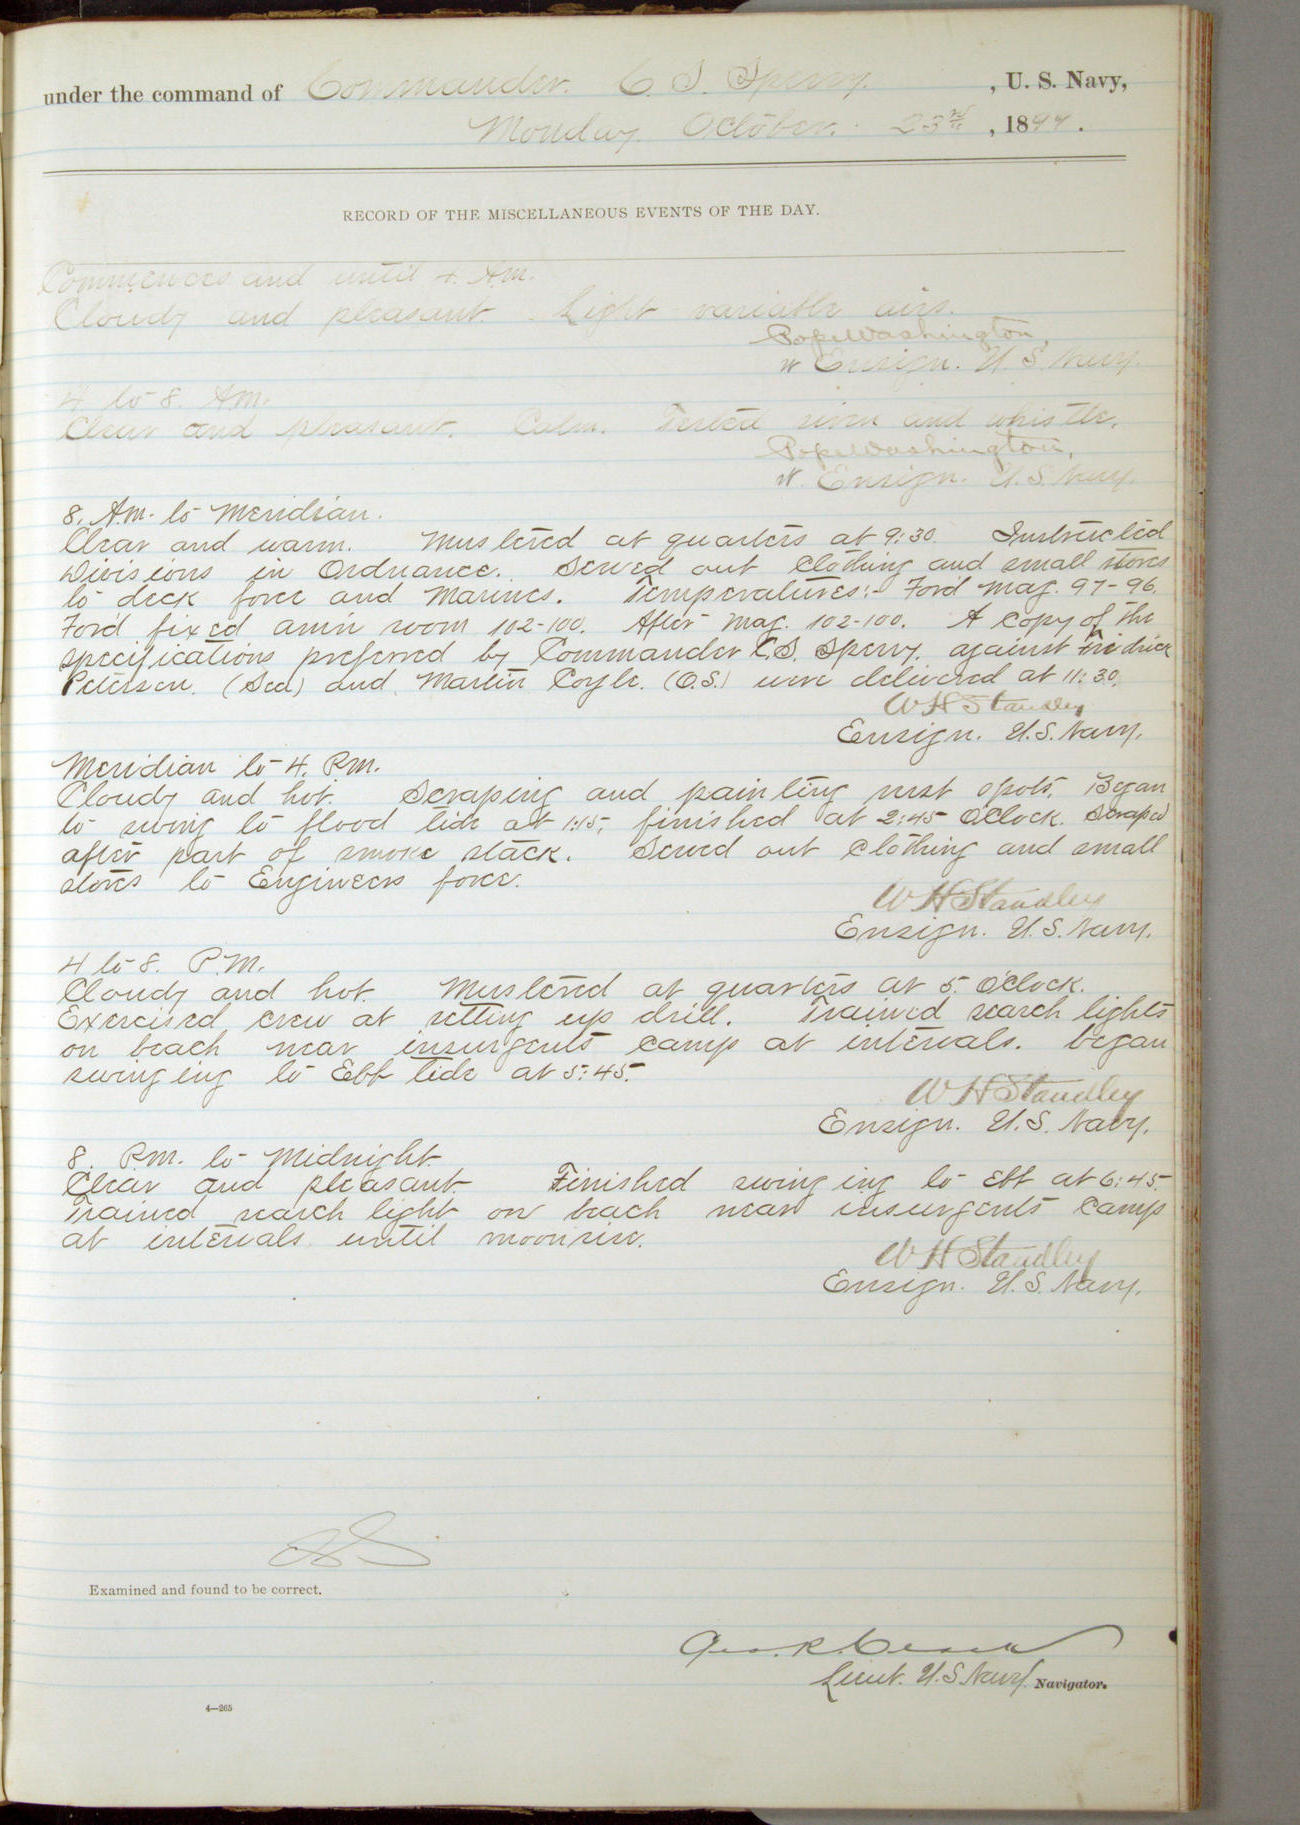 under the command of Commander. C. S. Sperry. , U. S. Navy,
Monday. October. 23rd , 1899.
RECORD OF THE MISCELLANEOUS EVENTS OF THE DAY.
Commences and until 4. Am.
Cloudy and pleasant. Light variable airs.
Pope Washington,
Ensign. U. S. Navy.
4 to 8. Am.
Clear and pleasant. Calm. Tested siren and whistle.
Pope Washington,
Ensign. U. S. Navy.
8. Am. to Meridian.
Clear and warm. Mustered at quarters at 9:30. Instructed
Divisions in Ordnance. Served out Clothing and small stores
to deck force and Marines. Temperatures:- Ford mag. 97-96.
Ford fixed amn room 102-100. After mag. 102-100. A copy of the
specifications preferred by Commander C.S. Sperry. against Fredrick
Petersen. (Sea) and Martin Coyle. (O.S.) were delivered at 11:30.
WH Standley
Ensign. U.S. Navy.
Meridian to 4. P.m.
Cloudy and hot. Scraping and painting rust spots. Began
to swing to flood tide at 1:15, finished at 2:45 O'Clock. Scraped
after part of smoke stack. Served out Clothing and small
stores to Engineers force.
W H Standley
Ensign. U.S. Navy.
4 to 8. P.M.
Cloudy and hot. Mustered at quarters at 5. O'Clock.
Exercised crew at setting up drill. Trained search lights
on beach near insurgents camp at intervals. began
swinging to Ebb tide at 5:45.
W H Standley
Ensign. U.S. Navy.
8. P.m. to Midnight.
Clear and pleasant. Finished swinging to Ebb at 6:45.
Trained search light on beach near insurgents camp
at intervals until moonrise.
W H Standley
Ensign. U.S. Navy.
Examined and found to be correct.
Geo. R.
Lieut. U.S. Navy. Navigator.
4—265